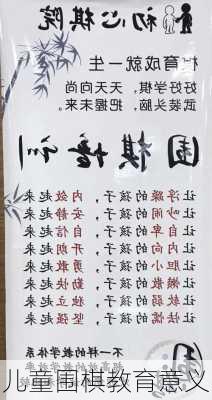 初心棋院
育成就一生
好好学棋，天天向尚
武装头脑，把握未来。
围棋培训
让浮躁的孩子，内敛起来
让吵闹的孩子，安静起来
让自卑的孩子，自信起来
让内向的孩子，开朗起来
让胆小的孩子，勇敢起来
让懒散的孩子，勤快起来
让软弱的孩子，独立起来
让怯懦的孩子，坚强起来
不一样的教学体系
高效的教学
儿童围棋教育意义